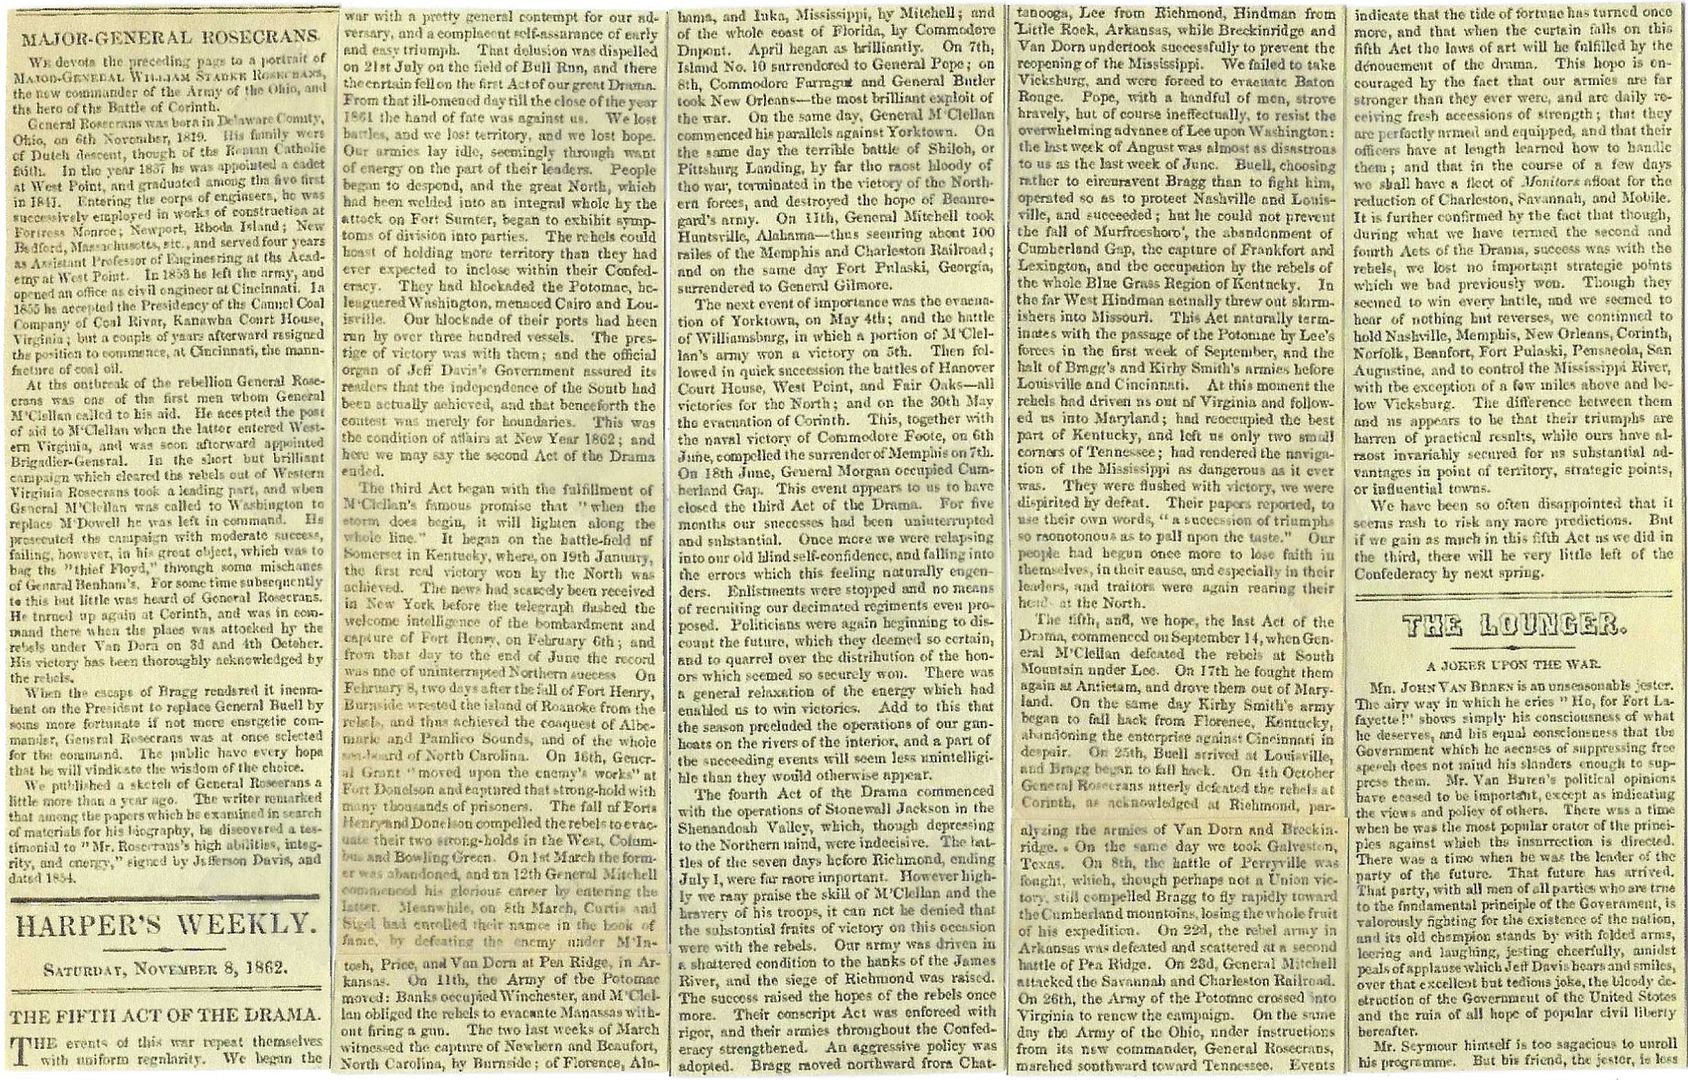 MAJOR-GENERAL ROSECRANS.
WE devote the preceding page to a portrait of
MAJOR-GENERAL WILLIAM STARKE ROSECRANS,
the new commander of the Army of the Ohio, and
the hero of the Battle of Corinth.
General Rosecrans was born in Delaware County,
Ohio, on 6th November, 1819. His family were
of Dutch descent, though of the Roman Catholic
faith. In the year 1837 he was appointed a cadet
at West Point, and graduated among the five first
in 1841. Entering the corps of engineers, he was
successively employed in works of construction at
Fortress Monroe; Newport, Rhoda Island; New
Bedford, Massachusetts, etc., and served four years
as Assistant Professor of Engineering at the Acad-
emy at West Point. In 1853 he left the army, and
opened an office as civil engineer at Cincinnati. In
1855 he accepted the Presidency of the Cannel Coal
Company of Coal River, Kanawha Court House,
Virginia; but a couple of years afterward resigned
the position to commence, at Cincinnati, the manu-
facture of coal oil.
At the outbreak of the rebellion General Rose-
crans was one of the first men whom General
M'Clellan called to his aid. He accepted the post
of aid to M'Clellan when the latter entered West-
ern Virginia, and was soon afterward appointed
Brigadier-General. In the short but brilliant
campaign which cleared the rebels out of Western
Virginia Rosecrans took a leading part, and when
General M'Clellan was called to Washington to
replace M'Dowell he was left in command. He
prosecuted the campaign with moderate success,
failing, however, in his great object, which was to
bag the "thief Floyd," through some mischance
of General Benham's. For some time subsequently
to this but little was heard of General Rosecrans.
He turned up again at Corinth, and was in com-
mand there when the place was attacked by the
rebels under Van Dorn on 3d and 4th October.
His victory has been thoroughly acknowledged by
the rebels.
When the escape of Bragg rendered it incum-
bent on the President to replace General Buell by
some more fortunate if not more energetic com-
mander, General Rosecrans was at once selected
for the command. The public have every hope
that he will vindicate the wisdom of the choice.
We published a sketch of General Rosecrans a
little more than a year ago. The writer remarked
that among the papers which he examined in search
of materials for his biography, he discovered a tes-
timonial to "Mr. Rosecrans's high abilities, integ-
rity, and energy," signed by Jefferson Davis, and
dated 1854.
HARPER'S WEEKLY.
SATURDAY, NOVEMBER 8, 1862.
THE FIFTH ACT OF THE DRAMA.
THE events of this war repeat themselves
with uniform regularity. We began the
war with a pretty general contempt for our ad-
versary, and a complacent self-assurance of early
and easy triumph. That delusion was dispelled
on 21st July on the field of Bull Run, and there
the curtain fell on the first Act of our great Drama.
From that ill-omened day till the close of the year
1861 the hand of fate was against us. We lost
battles, and we lost territory, and we lost hope.
Our armies lay idle, seemingly through want
of energy on the part of their leaders. People
began to despond, and the great North, which
had been welded into an integral whole by the
attack on Fort Sumter, began to exhibit symp-
toms of division into parties. The rebels could
boast of holding more territory than they had
ever expected to inclose within their Confed-
eracy. They had blockaded the Potomac, be-
leaguered Washington, menaced Cairo and Lou-
isville. Our blockade of their ports had been
run by over three hundred vessels. The pres-
tige of victory was with them; and the official
organ of Jeff Davis's Government assured its
readers that the independence of the South had
been actually achieved, and that henceforth the
contest was merely for boundaries. This was
the condition of affairs at New Year 1862; and
here we may say the second Act of the Drama
ended.
The third Act began with the fulfillment of
M'Clellan's famous promise that "when the
storm does begin, it will lighten along the
whole line." It began on the battle-field of
Somerset in Kentucky, where, on 19th January,
the first real victory won by the North was
achieved. The news had scarcely been received
in New York before the telegraph flashed the
welcome intelligence of the bombardment and
capture of Fort Henry, on February 6th; and
from that day to the end of June the record
was one of uninterrupted Northern success On
February 8, two days after the fall of Fort Henry,
Burnside wrested the island of Roanoke from the
rebels, and thus achieved the conquest of Albe-
marle and Pamlico Sounds, and of the whole
sea-board of North Carolina. On 16th, Gener-
al Grant "moved upon the enemy's works" at
Fort Donelson and captured that strong-hold with
many thousands of prisoners. The fall of Forts
Henry and Donelson compelled the rebels to evac-
uate their two strong-holds in the West, Colum-
bus and Bowling Green. On 1st March the form-
er was abandoned, and on 12th General Mitchell
commenced his glorious career by entering the
latter. Meanwhile, on 8th March, Curtis and
Sigel had enrolled their name in the book of
fame, by defeating the enemy under M'In-
tosh, Price, and Van Dorn at Pea Ridge, in Ar-
kansas. On 11th, the Army of the Potomac
moved: Banks occupied Winchester, and M'Clel-
lan obliged the rebels to evacuate Manassas with-
out firing a gun. The two last weeks of March
witnessed the capture of Newbern and Beaufort,
North Carolina, by Burnside; of Florence, Ala-
bama, and Iuka, Mississippi, by Mitchell; and
of the whole coast of Florida, by Commodore
Dupont. April began as brilliantly. On 7th,
Island No. 10 surrendered to General Pope; on
8th, Commodore Farragut and General Butler
took New Orleans—the most brilliant exploit of
the war. On the same day, General M'Clellan
commenced his parallels against Yorktown. On
the same day the terrible battle of Shiloh, or
Pittsburg Landing, by far the most bloody of
the war, terminated in the victory of the North-
ern forces, and destroyed the hope of Beaure-
gard's army. On 11th, General Mitchell took
Huntsville, Alabama—thus securing about 100
miles of the Memphis and Charleston Railroad;
and on the same day Fort Pulaski, Georgia,
surrendered to General Gilmore.
The next event of importance was the evacua-
tion of Yorktown, on May 4th; and the battle
of Williamsburg, in which a portion of M'Clel-
lan's army won a victory on 5th. Then fol-
lowed in quick succession the battles of Hanover
Court House, West Point, and Fair Oaks—all
victories for the North; and on the 30th May
the evacuation of Corinth. This, together with
the naval victory of Commodore Foote, on 6th
June, compelled the surrender of Memphis on 7th.
On 18th June, General Morgan occupied Cum-
berland Gap. This event appears to us to have
closed the third Act of the Drama. For five
months our successes had been uninterrupted
and substantial. Once more we were relapsing
into our old blind self-confidence, and falling into
the errors which this feeling naturally engen-
ders. Enlistments were stopped and no means
of recruiting our decimated regiments even pro-
posed. Politicians were again beginning to dis-
count the future, which they deemed so certain,
and to quarrel over the distribution of the hon-
ors which seemed so securely won. There was
a general relaxation of the energy which had
enabled us to win victories. Add to this that
the season precluded the operations of our gun-
boats on the rivers of the interior, and a part of
the succeeding events will seem less unintelligi-
ble than they would otherwise appear.
The fourth Act of the Drama commenced
with the operations of Stonewall Jackson in the
Shenandoah Valley, which, though depressing
to the Northern mind, were indecisive. The bat-
tles of the seven days before Richmond, ending
July 1, were far more important. However high-
ly we may praise the skill of M'Clellan and the
bravery of his troops, it can not be denied that
the substantial fruits of victory on this occasion
were with the rebels. Our army was driven in
a shattered condition to the banks of the James
River, and the siege of Richmond was raised.
The success raised the hopes of the rebels once
more. Their conscript Act was enforced with
rigor, and their armies throughout the Confed-
eracy strengthened. An aggressive policy was
adopted. Bragg moved northward from Chat-
tanooga, Lee from Richmond, Hindman from
Little Rock, Arkansas, while Breckinridge and
Van Dorn undertook successfully to prevent the
reopening of the Mississippi. We failed to take
Vicksburg, and were forced to evacuate Baton
Rouge. Pope, with a handful of men, strove
bravely, but of course ineffectually, to resist the
overwhelming advance of Lee upon Washington:
the last week of August was almost as disastrous
to us as the last week of June. Buell, choosing
rather to circumvent Bragg than to fight him,
operated so as to protect Nashville and Louis-
ville, and succeeded; but he could not prevent
the fall of Murfreesboro', the abandonment of
Cumberland Gap, the capture of Frankfort and
Lexington, and the occupation by the rebels of
the whole Blue Grass Region of Kentucky. In
the far West Hindman actually threw out skirm-
ishers into Missouri. This Act naturally term-
inates with the passage of the Potomac by Lee's
forces in the first week of September, and the
halt of Bragg's and Kirby Smith's armies before
Louisville and Cincinnati. At this moment the
rebels had driven us out of Virginia and follow-
ed us into Maryland; had reoccupied the best
part of Kentucky, and left us only two small
corners of Tennessee; had rendered the naviga-
tion of the Mississippi as dangerous as it ever
was. They were flushed with victory, we were
dispirited by defeat. Their papers reported, to
use their own words, "a succession of triumphs
so monotonous as to pall upon the taste." Our
people had begun once more to lose faith in
themselves, in their cause, and especially in their
leaders, and traitors were again rearing their
heads at the North.
The fifth, and, we hope, the last Act of the
Drama, commenced on September 14, when Gen-
eral M'Clellan defeated the rebels at South
Mountain under Lee. On 17th he fought them
again at Antietam, and drove them out of Mary-
land. On the same day Kirby Smith's army
began to fall back from Florence, Kentucky,
abandoning the enterprise against Cincinnati in
despair. On 25th, Buell arrived at Louisville,
and Bragg began to fall back. On 4th October
General Rosecrans utterly defeated the rebels at
Corinth, as acknowledged at Richmond, par-
alyzing the armies of Van Dorn and Breckin-
ridge. On the same day we took Galveston,
Texas. On 8th, the battle of Perryville was
fought, which, though perhaps not a Union vic-
tory, still compelled Bragg to fly rapidly toward
the Cumberland mountains, losing the whole fruit
of his expedition. On 22d, the rebel army in
Arkansas was defeated and scattered at a second
battle of Pea Ridge. On 23d, General Mitchell
attacked the Savannah and Charleston Railroad.
On 26th, the Army of the Potomac crossed into
Virginia to renew the campaign. On the same
day the Army of the Ohio, under instructions
from its new commander, General Rosecrans,
marched southward toward Tennessee. Events
indicate that the tide of fortune has turned once
more, and that when the curtain falls on this
fifth Act the laws of art will be fulfilled by the
dénouement of the drama. This hope is en-
couraged by the fact that our armies are far
stronger than they ever were, and are daily re-
ceiving fresh accessions of strength; that they
are perfectly armed and equipped, and that their
officers have at length learned how to handle
them; and that in the course of a few days
we shall have a fleet of Monitors afloat for the
reduction of Charleston, Savannah, and Mobile.
It is further confirmed by the fact that though,
during what we have termed the second and
fourth Acts of the Drama, success was with the
rebels, we lost no important strategic points
which we had previously won. Though they
seemed to win every battle, and we seemed to
hear of nothing but reverses, we continued to
hold Nashville, Memphis, New Orleans, Corinth,
Norfolk, Beaufort, Fort Pulaski, Pensacola, San
Augustine, and to control the Mississippi River,
with the exception of a few miles above and be-
low Vicksburg. The difference between them
and us appears to be that their triumphs are
barren of practical results, while ours have al-
most invariably secured for us substantial ad-
vantages in point of territory, strategic points,
or influential towns.
We have been so often disappointed that it
seems rash to risk any more predictions. But
if we gain as much in this fifth Act as we did in
the third, there will be very little left of the
Confederacy by next spring.
THE LOUNGER.
A JOKER UPON THE WAR.
MR. JOHN VAN BUREN is an unseasonable jester.
The airy way in which he cries "Ho, for Fort La-
fayette!" shows simply his consciousness of what
he deserves, and his equal consciousness that the
Government which he accuses of suppressing free
speech does not mind his slanders enough to sup-
press them. Mr. Van Buren's political opinions
have ceased to be important, except as indicating
the views and policy of others. There was a time
when he was the most popular orator of the princi-
ples against which the insurrection is directed.
There was a time when he was the leader of the
party of the future. That future has arrived.
That party, with all men of all parties who are true
to the fundamental principle of the Government, is
valorously fighting for the existence of the nation,
and its old champion stands by with folded arms,
leering and laughing, jesting cheerfully, amidst
peals of applause which Jeff Davis hears and smiles,
over that excellent but tedious joke, the bloody de-
struction of the Government of the United States
and the ruin of all hope of popular civil liberty
hereafter.
Mr. Seymour himself is too sagacious to unroll
his programme. But his friend, the jester, is less